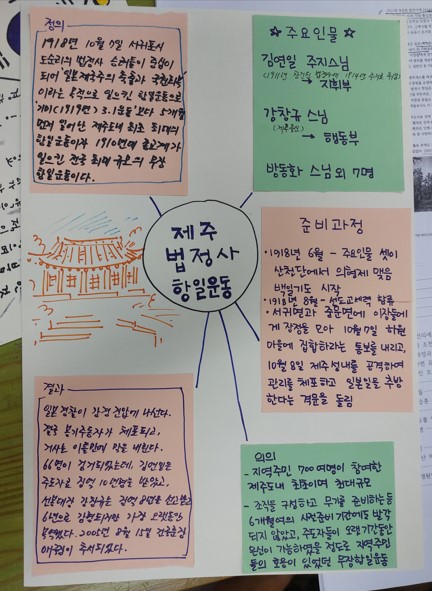 정의
1918년 10월 7일 서귀포시
도순리의 법정사 승려들이 중심이
되어 일본제국주의 축출과 국권회복
이라는 목적으로 일으킨 항일운동으로
기미(1919년) 3.1운동보다 5개월
먼저 일어난 제주도내 최초 최대의
항일운동이자 1910년대 종교계가
일으킨 전국 최대 규모의 무장
항일운동이다.
☆주요인물☆
김연일 주지스님
→ 지휘부
강창규 스님
→ 행동부
방동화 스님 외 7명
제주
법정사
항일운동
준비과정
•1918년 6월 - 주요인물 셋이
산천단에서 의형제 맺음
백일기도 시작
•1918년 8월 - 선도교세력 합류
•서귀면과 중문면에 이장들에
게 장정을 모아 10월 7일 하원
마을에 집합하라는 통보를 내리고,
10월 8일 제주성내를 공격하여
관리를 체포하고 일본인을 추방
한다는 격문을 돌림
결과
일본 경찰이 강경 진압에 나선다.
체포되고,
거사는 이틀만에 막을 내린다.
66명이 검거되었는데, 김연일은
주도자로 징역 10년형을 받았고,
선봉대장 강창규는 징역 8년을 선고받고
6년으로 감형되지만 가장 오랫동안
복역했다. 2005년 8월 15일 건국훈장
애국장이 추서되었다.
의의
- 지역주민 700여명이 참여한
제주도내 최초이며 최대규모
- 조직을 구성하고 무기를 준비하는 등
6개월여의 사전준비 기간에도 발각
되지 않았고, 주도자들이 오랜기간동안
은신이 가능하였을 정도로 지역주민
들의 호응이 있었던 무장항일운동